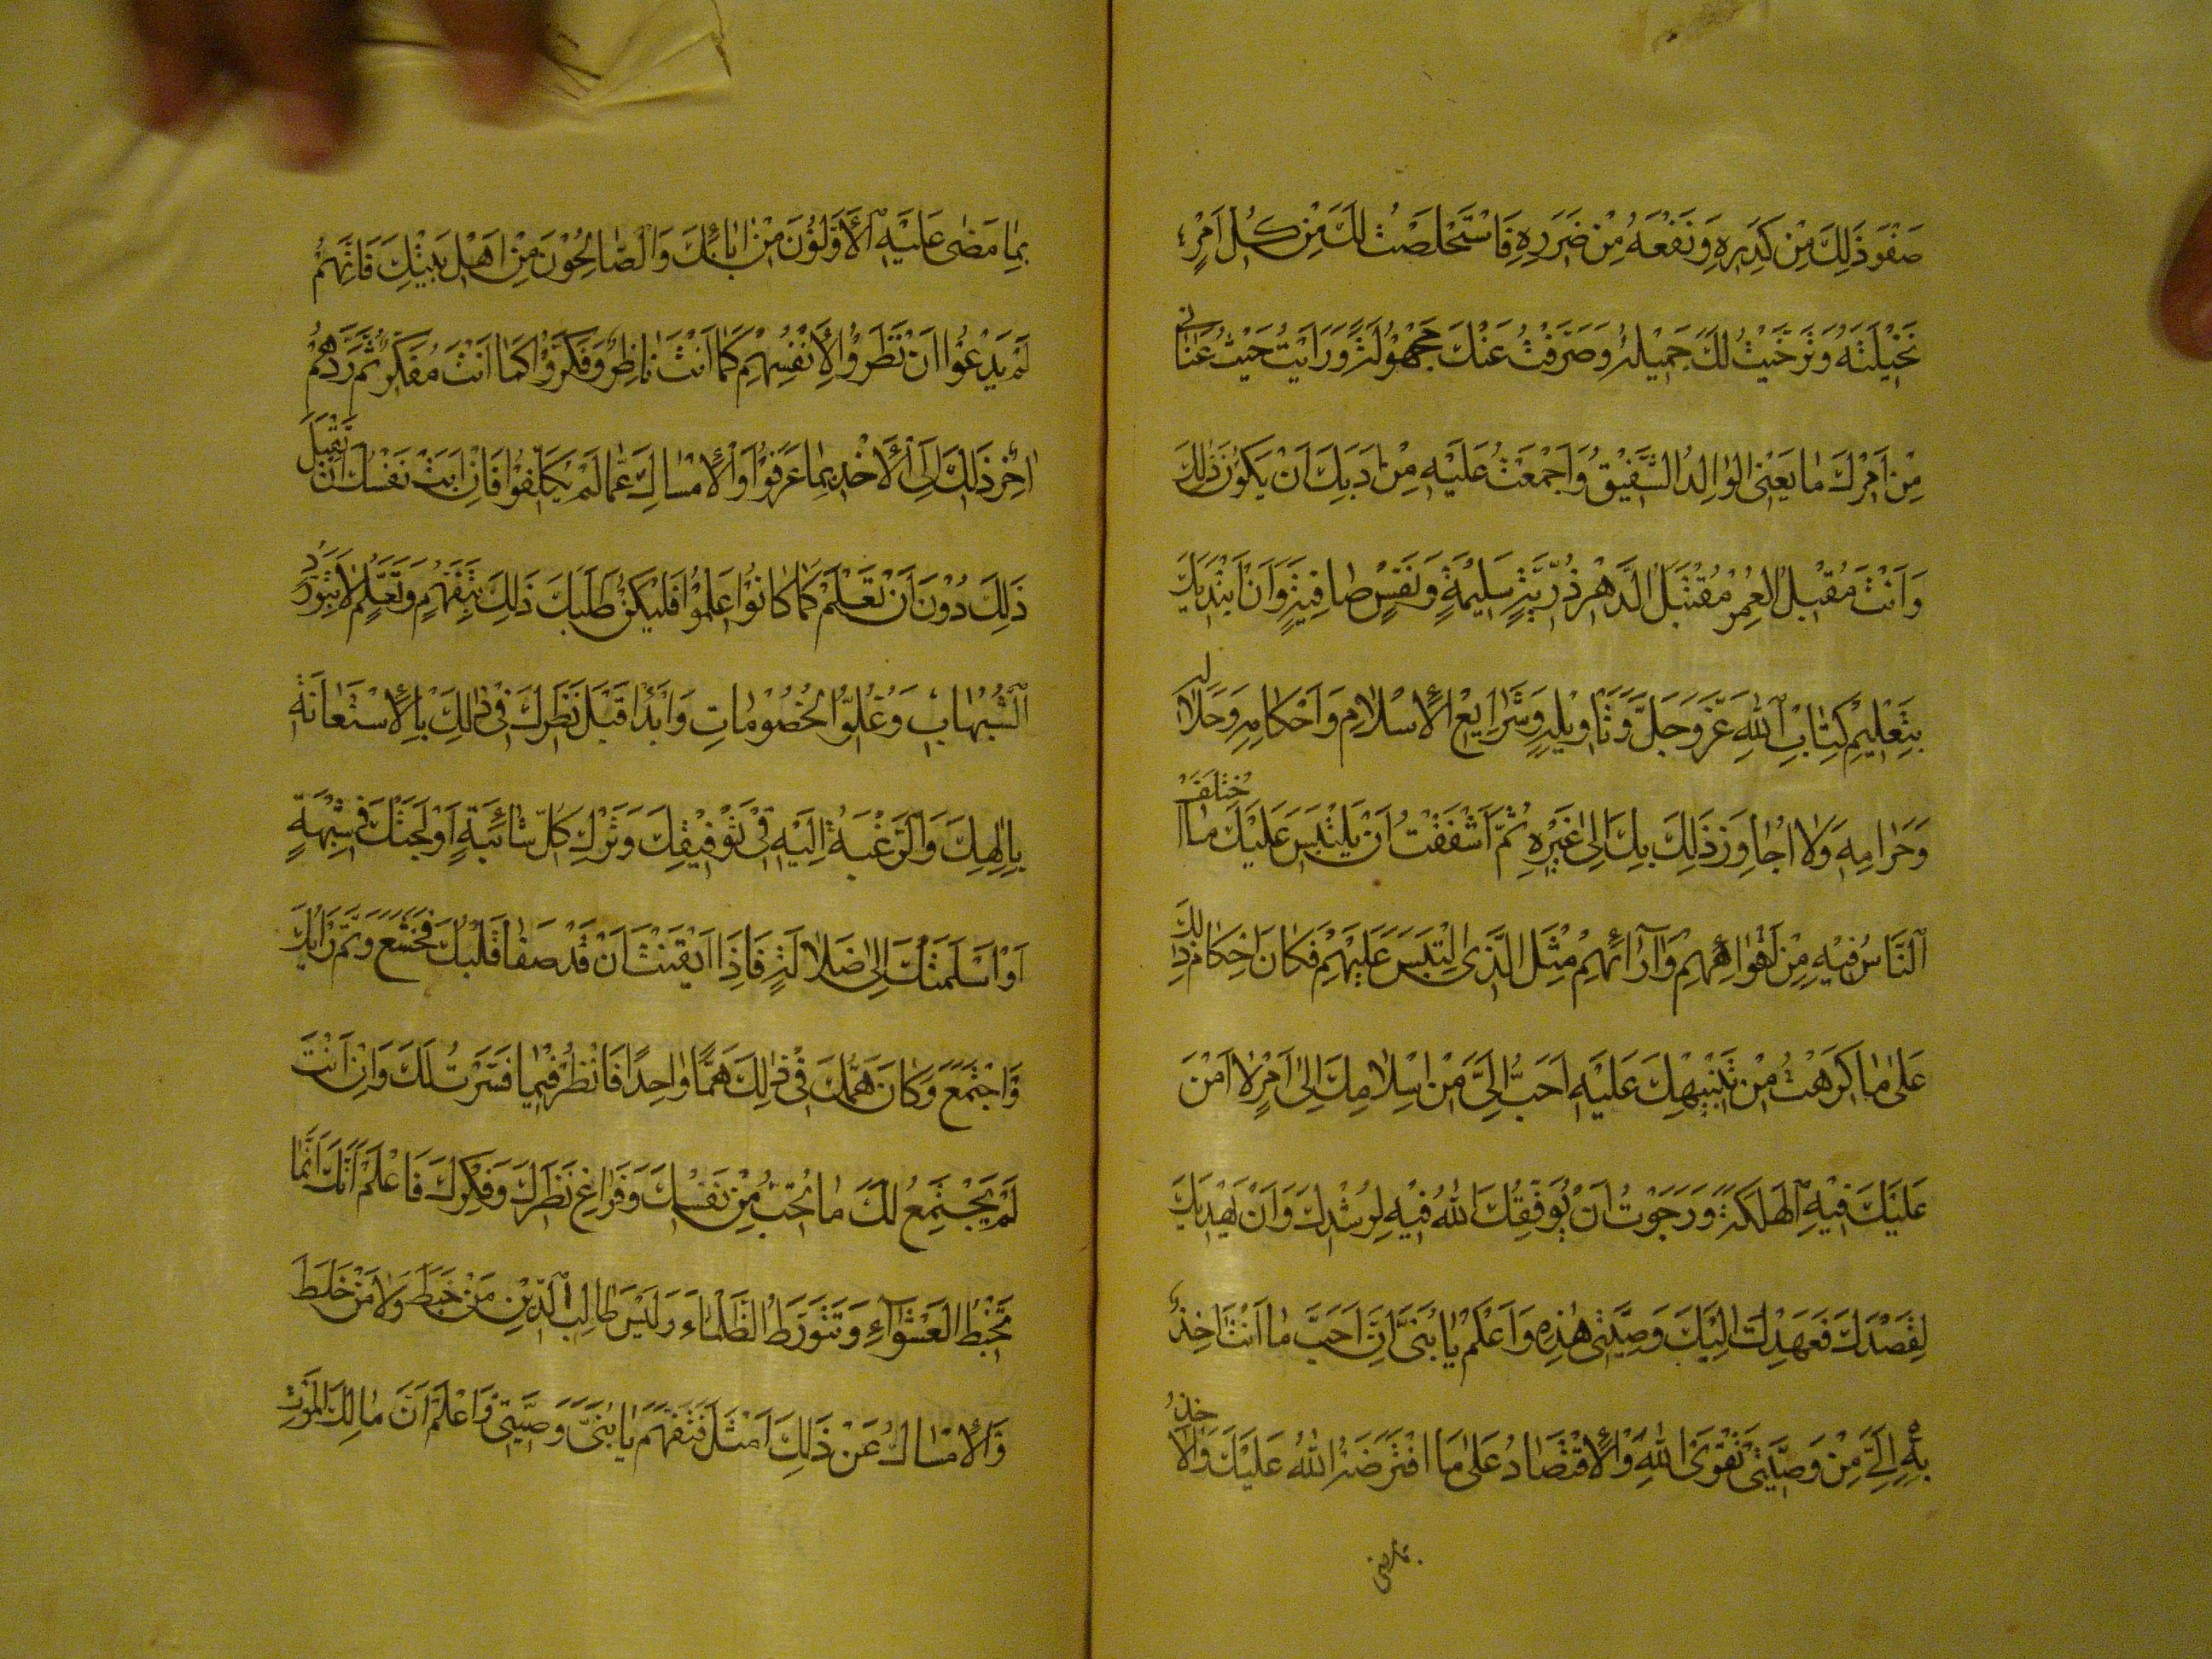 صَفْوَ ذَلِكَ مِنْ كَدَرِهِ وَنَفْعَهُ مِنْ ضَرَرِهِ فَاسْتَخْلَصْتُ لَكَ مِنْ كُلِّ اَمْرٍ
نَخِيْلَتَهُ وَتَوَخَّيْتُ لَكَ جَمِيْلَهُ وَصَرَفْتُ عَنْكَ مَجْهُوْلَهُ وَرَاَيْتُ حَيْثُ عَنَانِي
مِنْ اَمْرِكَ مَا يَعْنِى الْوَالِدَ الشَّفِيْقَ وَاَجْمَعْتُ عَلَيْهِ مِنْ اَدَبِكَ اَنْ يَكُوْنَ ذَلِكَ
وَاَنْتَ مُقْبِلُ الْعُمُرِ مُقْتَبَلُ الدَّهْرِ ذُو نِيَّةٍ سَلِيْمَةٍ وَنَفْسٍ صَافِيَةٍ وَاَنْ اَبْتَدِئَكَ
بِتَعْلِيْمِ كِتَابِ اللهِ عَزَّ وَجَلَّ وَتَاْوِيْلِهِ وَشَرَايِعِ الْاِسْلَامِ وَاَحْكَامِهِ وَحَلَالِهِ
وَحَرَامِهِ وَلَا اُجَاوِزَ ذَلِكَ بِكَ اِلَى غَيْرِهِ ثُمَّ اَشْفَقْتُ اَنْ يَلْتَبِسَ عَلَيْكَ مَا اخْتَلَفَ
النَّاسُ فِيْهِ مِنْ اَهْوَائِهِمْ وَآرَائِهِمْ مِثْلَ الَّذِى الْتَبَسَ عَلَيْهِمْ فَكَانَ اِحْكَامُ ذَلِكَ
عَلَى مَا كَرِهْتُ مِنْ تَنْبِيْهِكَ عَلَيْهِ اَحَبَّ اِلَيَّ مِنْ اِسْلَامِكَ اِلَى اَمْرٍ لَا اٰمَنُ
عَلَيْكَ فِيْهِ الْهَلَكَةَ وَرَجَوْتُ اَنْ يُوَفِّقَكَ اللهُ فِيْهِ لِرُشْدِكَ وَاَنْ يَهْدِيَكَ
لِقَصْدِكَ فَعَهِدْتُ اِلَيْكَ وَصِيَّتِى هَذِهِ وَاعْلَمْ يَا بُنَىَّ اَنَّ اَحَبَّ مَا اَنْتَ اٰخِذٌ
بِهِ اِلَيَّ مِنْ وَصِيَّتِى تَقْوَى اللهِ وَالْاِقْتِصَادُ عَلَى مَا افْتَرَضَهُ اللهُ عَلَيْكَ وَالْاَخْذُ
بِمَا مَضَى عَلَيْهِ الْاَوَّلُوْنَ مِنْ اٰبَائِكَ وَالصَّالِحُوْنَ مِنْ اَهْلِ بَيْتِكَ فَاِنَّهُمْ
لَمْ يَدَعُوْا اَنْ نَظَرُوْا لِاَنْفُسِهِمْ كَمَا اَنْتَ نَاظِرٌ وَفَكَّرُوْا كَمَا اَنْتَ مُفَكِّرٌ ثُمَّ رَدَّهُمْ
اٰخِرُ ذَلِكَ اِلَى الْاَخْذِ بِمَا عَرَفُوْا وَالْاِمْسَاكِ عَمَّا لَمْ يُكَلَّفُوْا فَاِنْ اَبَتْ نَفْسُكَ اَنْ تَقْبَلَ
ذَلِكَ دُوْنَ اَنْ تَعْلَمَ كَمَا كَانُوْا عَلِمُوْا فَلْيَكُنْ طَلَبُكَ ذَلِكَ بِتَفَهُّمٍ وَتَعَلُّمٍ لَا بِتَوَرُّدِ
الشُّبُهَاتِ وَغُلُوِّ الْخُصُوْمَاتِ وَابْدَاْ قَبْلَ نَظَرِكَ فِى ذَلِكَ بِالْاِسْتِعَانَةِ
بِاِلٰهِكَ وَالرَّغْبَةِ اِلَيْهِ فِى تَوْفِيْقِكَ وَتَرْكِ كُلِّ شَائِبَةٍ اَوْلَجَتْكَ فِى شُبْهَةٍ
اَوْ اَسْلَمَتْكَ اِلَى ضَلَالَةٍ فَاِذَا اَيْقَنْتَ اَنْ قَدْ صَفَا قَلْبُكَ فَخَشَعَ وَتَمَّ رَاْيُكَ
وَاجْتَمَعَ وَكَانَ هَمُّكَ فِى ذَلِكَ هَمًّا وَاحِدًا فَانْظُرْ فِيْمَا فَسَّرْتُ لَكَ وَاِنْ اَنْتَ
لَمْ يَجْتَمِعْ لَكَ مَا تُحِبُّ مِنْ نَفْسِكَ وَفَرَاغِ نَظَرِكَ وَفِكْرِكَ فَاعْلَمْ اَنَّكَ اِنَّمَا
تَخْبِطُ الْعَشْوَآءَ وَتَتَوَرَّطُ الظَّلْمَاءَ وَلَيْسَ طَالِبُ الدِّيْنِ مَنْ خَبَطَ وَلَا مَنْ خَلَطَ
وَالْاِمْسَاكُ عَنْ ذَلِكَ اَمْثَلُ فَتَفَهَّمْ يَا بُنَىَّ وَصِيَّتِى وَاعْلَمْ اَنَّ مَالِكَ الْمَوْتِ